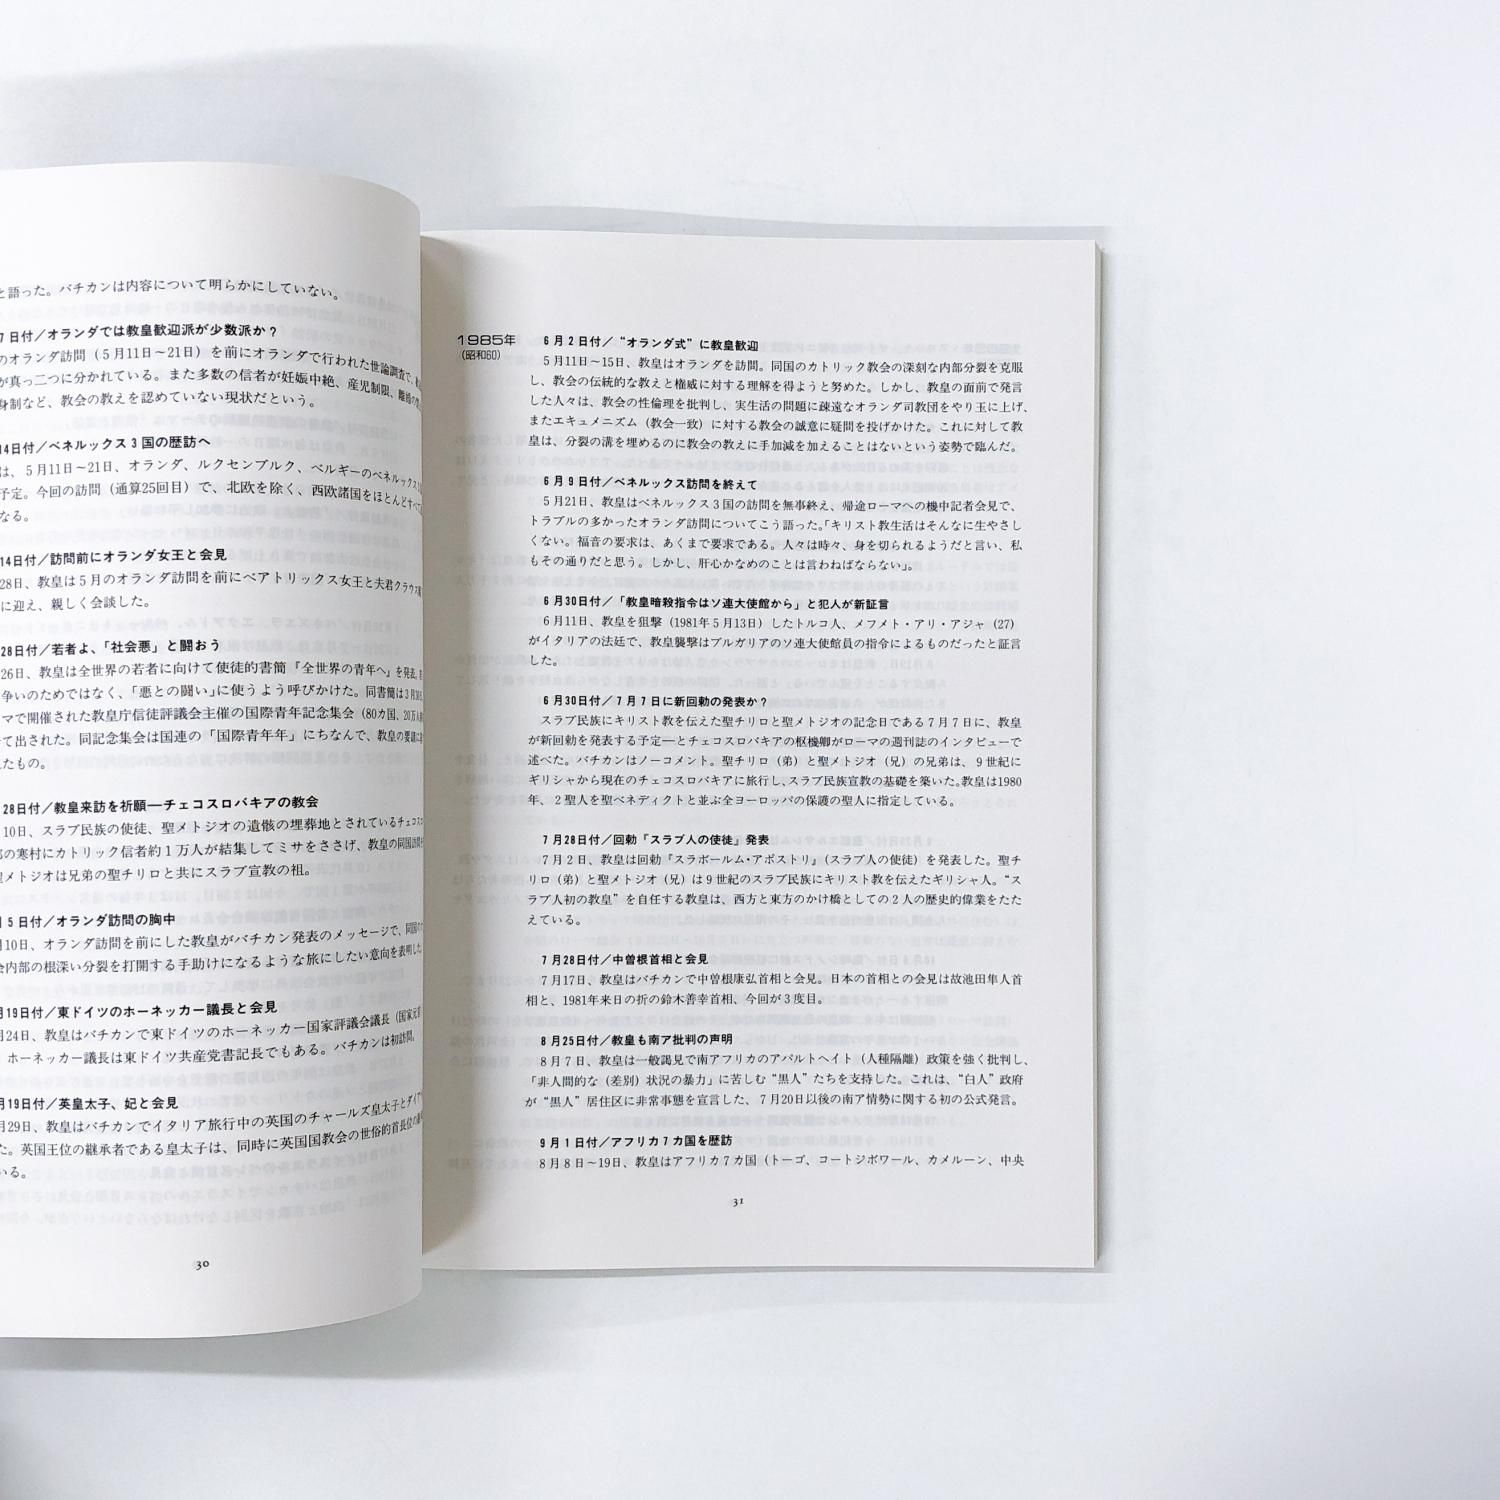 と語った。バチカンは内容について明らかにしていない。
7日付／オランダでは教皇歓迎派が少数派か？
のオランダ訪問（5月11日～21日）を前にオランダで行われた世論調査で、
が真っ二つに分かれている。また多数の信者が妊娠中絶、産児制限、離婚の
身制など、教会の教えを認めていない現状だという。
14日付／ベネルックス3国の歴訪へ
は、5月11日～21日、オランダ、ルクセンブルク、ベルギーのベネルックス
予定。今回の訪問（通算25回目）で、北欧を除く、西欧諸国をほとんどすべて
なる。
14日付／訪問前にオランダ女王と会見
28日、教皇は5月のオランダ訪問を前にベアトリックス女王と夫君クラウス
に迎え、親しく会談した。
28日付／若者よ、「社会悪」と闘おう
26日、教皇は全世界の若者に向けて使徒的書簡『全世界の青年へ』を発表、
争いのためではなく、「悪との闘い」に使うよう呼びかけた。同書簡は3月
マで開催された教皇庁信徒評議会主催の国際青年記念集会（80カ国、20万人
て出された。同記念集会は国連の「国際青年年」にちなんで、教皇の要請に
たもの。
28日付／教皇来訪を祈願―チェコスロバキアの教会
10日、スラブ民族の使徒、聖メトジオの遺骸の埋葬地とされているチェコス
の寒村にカトリック信者約1万人が結集してミサをささげ、教皇の同国訪問
聖メトジオは兄弟の聖チリロと共にスラブ宣教の祖。
月5日付／オランダ訪問の胸中
月10日、オランダ訪問を前にした教皇がバチカン発表のメッセージで、同国
会内部の根深い分裂を打開する手助けになるような旅にしたい意向を表明した
月19日付／東ドイツのホーネッカー議長と会見
月24日、教皇はバチカンで東ドイツのホーネッカー国家評議会議長（国家元首
。ホーネッカー議長は東ドイツ共産党書記長でもある。バチカンは初訪問。
月19日付／英皇太子、妃と会見
月29日、教皇はバチカンでイタリア旅行中の英国のチャールズ皇太子とダイア
た。英国王位の継承者である皇太子は、同時に英国国教会の世俗的首長位の
いる。
30
1985年
（昭和60）
6月2日付／“オランダ式”に教皇歓迎
5月11日～15日、教皇はオランダを訪問。同国のカトリック教会の深刻な内部分裂を克服
し、教会の伝統的な教えと権威に対する理解を得ようと努めた。しかし、教皇の面前で発言
した人々は、教会の性倫理を批判し、実生活の問題に疎遠なオランダ司教団をやり玉に上げ、
またエキュメニズム（教会一致）に対する教会の誠意に疑問を投げかけた。これに対して教
皇は、分裂の溝を埋めるのに教会の教えに手加減を加えることはないという姿勢で臨んだ。
6月9日付／ベネルックス訪問を終えて
5月21日、教皇はベネルックス3国の訪問を無事終え、帰途ローマへの機中記者会見で、
トラブルの多かったオランダ訪問についてこう語った。「キリスト教生活はそんなに生やさし
くない。福音の要求は、あくまで要求である。人々は時々、身を切られるようだと言い、私
もその通りだと思う。しかし、肝心かなめのことは言わねばならない」。
6月30日付／「教皇暗殺指令はソ連大使館から」と犯人が新証言
6月11日、教皇を狙撃（1981年5月13日）したトルコ人、メフメト・アリ・アジャ（27）
がイタリアの法廷で、教皇襲撃はブルガリアのソ連大使館員の指令によるものだったと証言
した。
6月30日付／7月7日に新回勅の発表か？
スラブ民族にキリスト教を伝えた聖チリロと聖メトジオの記念日である7月7日に、教皇
が新回勅を発表する予定―とチェコスロバキアの枢機卿がローマの週刊誌のインタビューで
述べた。バチカンはノーコメント。聖チリロ（弟）と聖メトジオ（兄）の兄弟は、9世紀に
ギリシャから現在のチェコスロバキアに旅行し、スラブ民族宣教の基礎を築いた。教皇は1980
年、2聖人を聖ベネディクトと並ぶ全ヨーロッパの保護の聖人に指定している。
7月28日付／回勅『スラブ人の使徒』発表
7月2日、教皇は回勅『スラボールム・アポストリ』（スラブ人の使徒）を発表した。聖チ
リロ（弟）と聖メトジオ（兄）は9世紀のスラブ民族にキリスト教を伝えたギリシャ人。“ス
ラブ人初の教皇”を自任する教皇は、西方と東方のかけ橋としての2人の歴史的偉業をたた
えている。
7月28日付／中曽根首相と会見
7月17日、教皇はバチカンで中曽根康弘首相と会見。日本の首相との会見は故池田隼人首
相と、1981年来日の折の鈴木善幸首相、今回が3度目。
8月25日付／教皇も南ア批判の声明
8月7日、教皇は一般謁見で南アフリカのアパルトヘイト（人種隔離）政策を強く批判し、
「非人間的な（差別）状況の暴力」に苦しむ“黒人”たちを支持した。これは、“白人”政府
が“黒人”居住区に非常事態を宣言した、7月20日以後の南ア情勢に関する初の公式発言。
9月1日付／アフリカ7カ国を歴訪
8月8日～19日、教皇はアフリカ7カ国（トーゴ、コートジボワール、カメルーン、中央
31